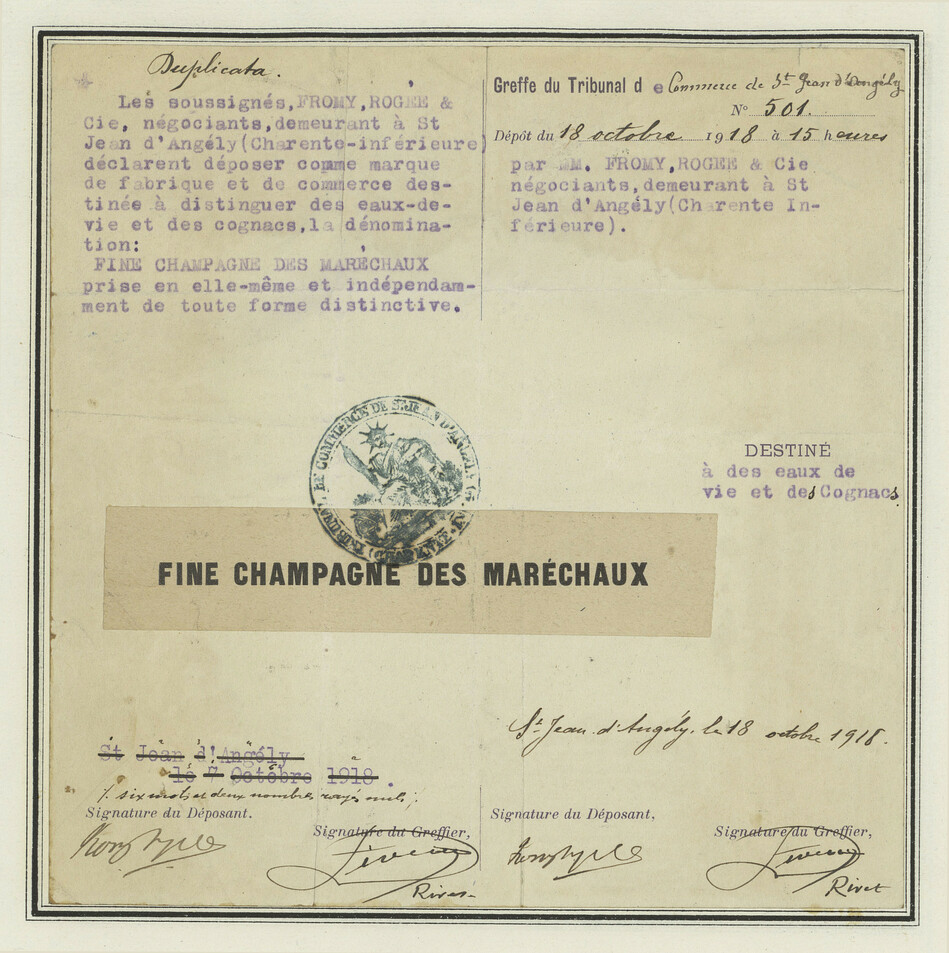 Duplicata.
Les soussignés, FROMY, ROGEE &
Cie, négociants, demeurant à St
Jean d'Angély (Charente-inférieure)
déclarent déposer comme marque
de fabrique et de commerce des-
tinée à distinguer des eaux-de-
vie et des cognacs, la dénomina-
tion:
FINE CHAMPAGNE DES MARÉCHAUX
prise en elle-même et indépendam-
ment de toute forme distinctive.
Greffe du Tribunal de Commerce de St Jean d'Angély
N° 501.
Dépôt du 18 octobre 1918 à 15 heures
par MM. FROMY, ROGEE & Cie
négociants, demeurant à St
Jean d'Angély (Charente In-
férieure).
TRIBUNAL DE COMMERCE DE ST JEAN D'ANGÉLY
DESTINÉ
à des eaux de
vie et des Cognacs
FINE CHAMPAGNE DES MARÉCHAUX
St Jean d'Angély, le 18 octobre 1918.
St Jean d'Angély
le 7 Octobre 1918.
six mots et deux nombres rayés nuls.
Signature du Déposant.
Signature du Greffier,
Signature du Déposant,
Signature du Greffier,
Rivet